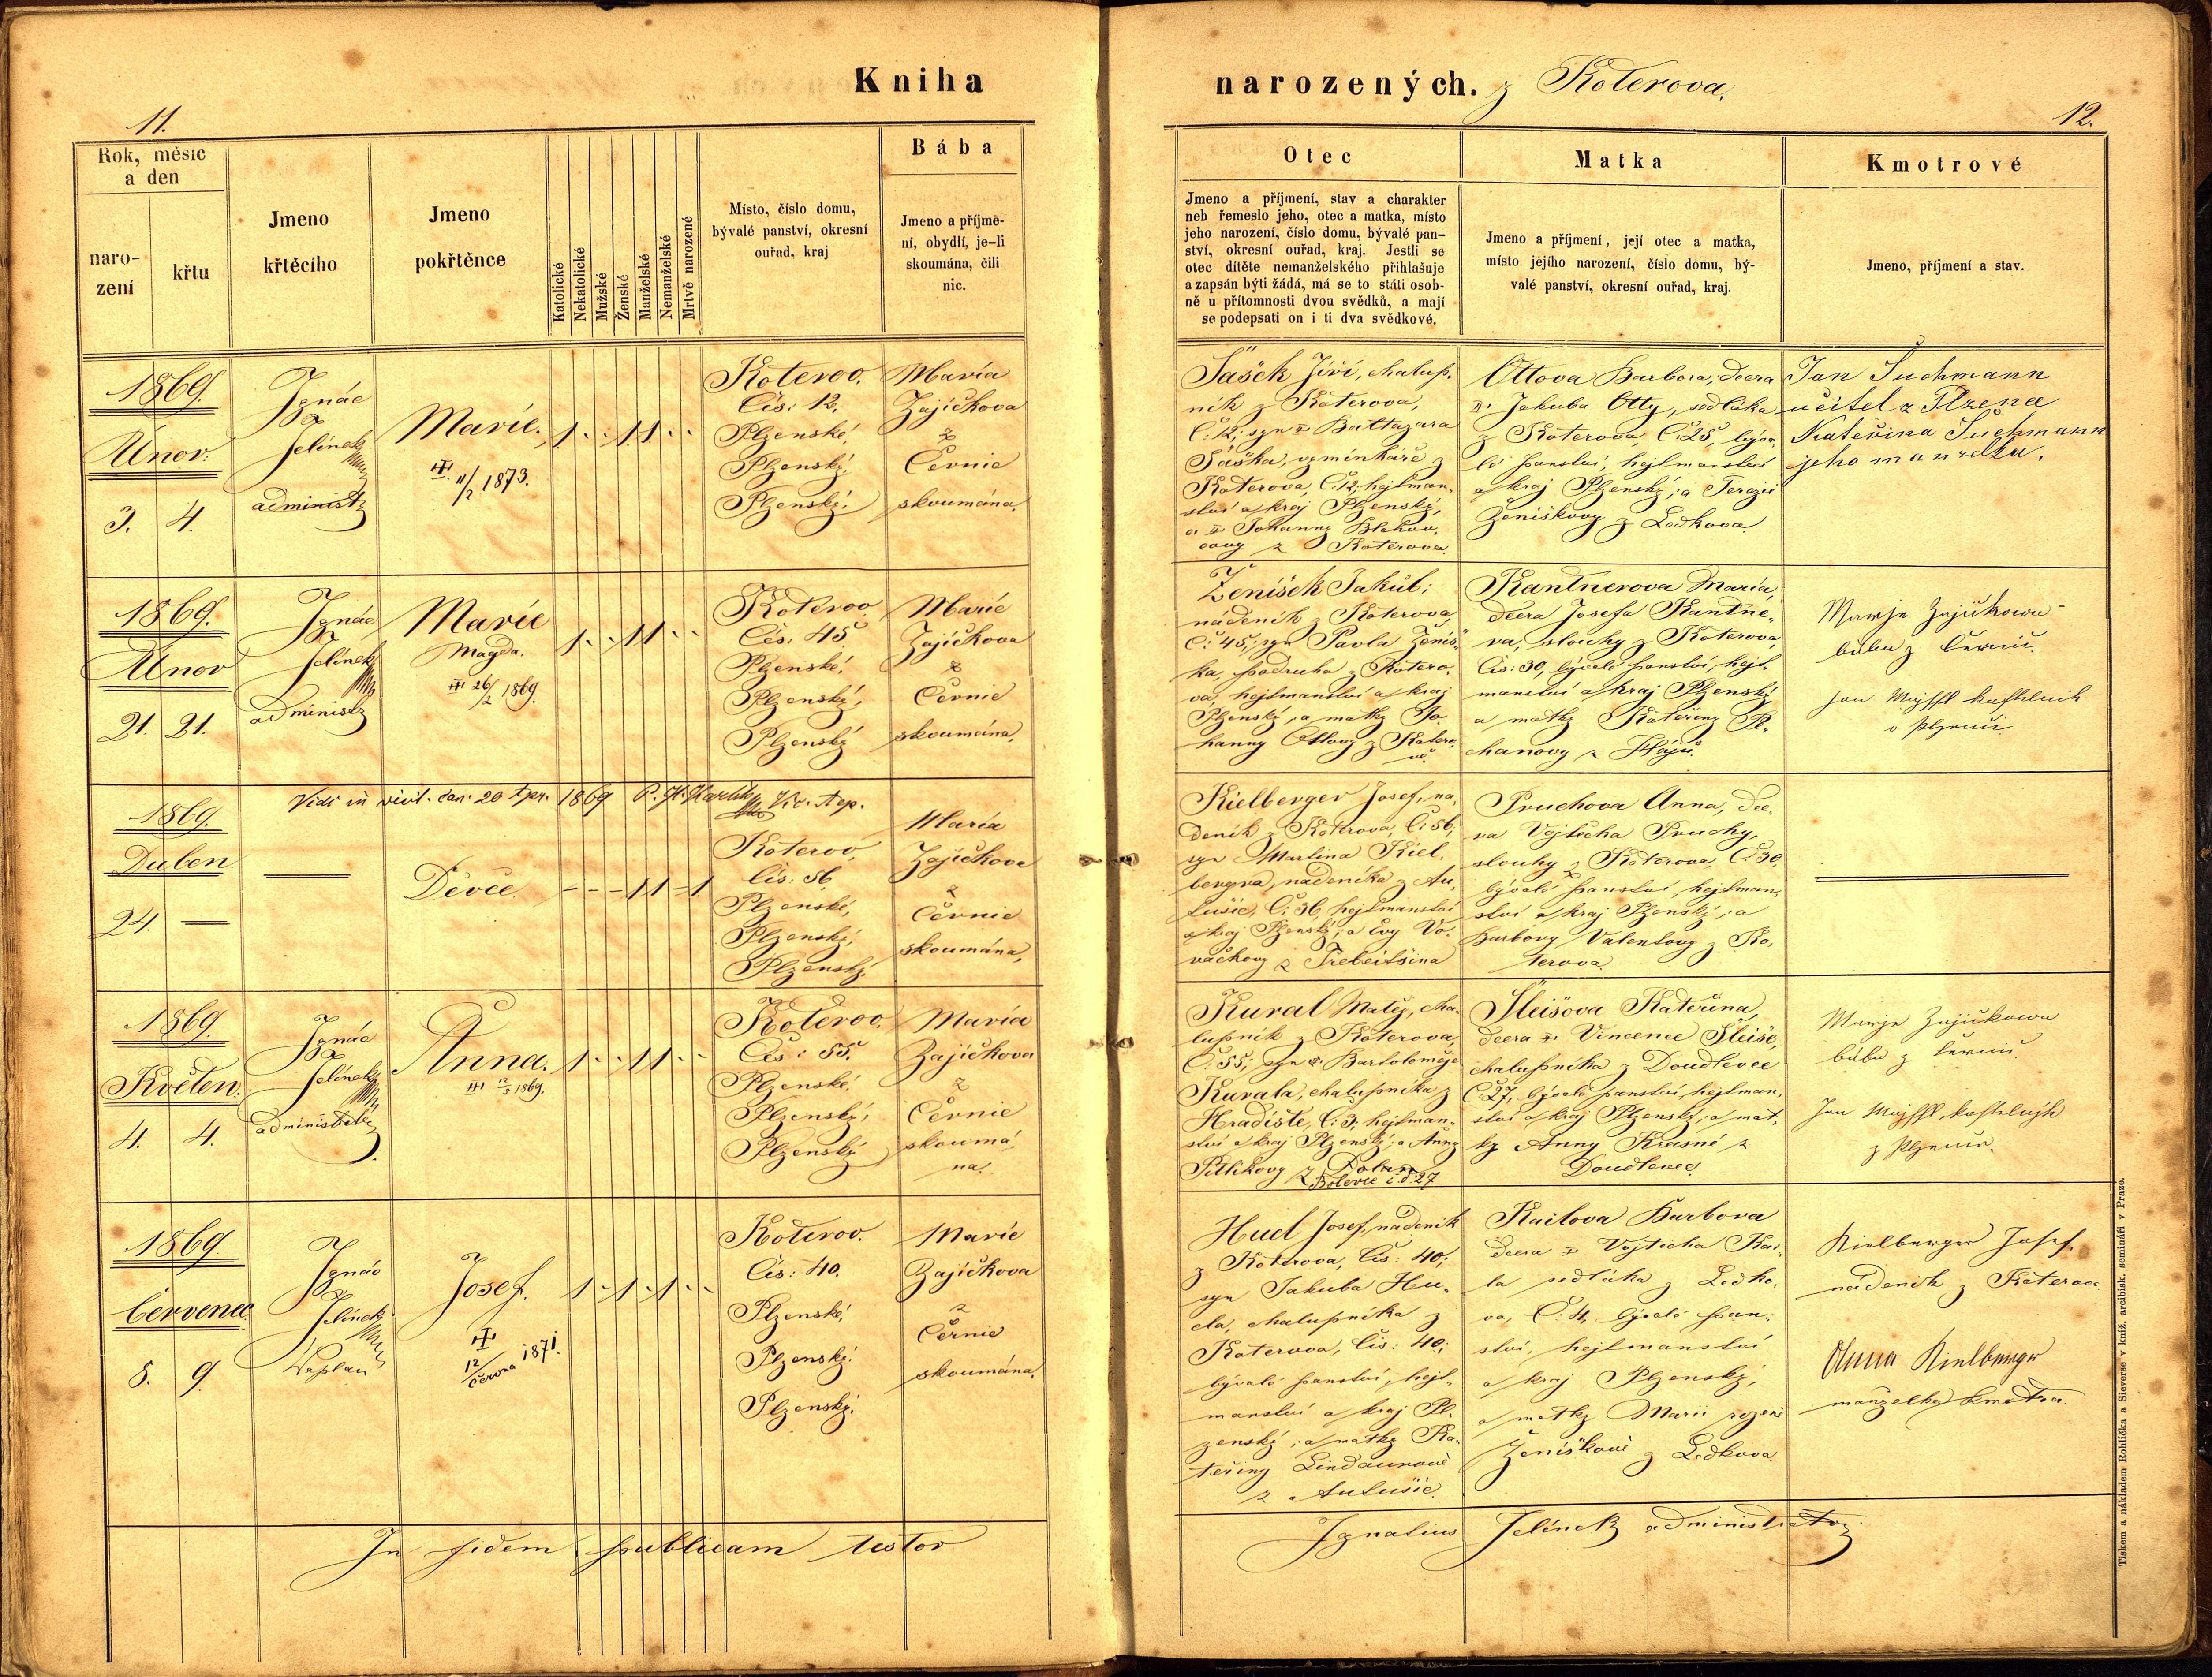 Kniha
narozených. z Koterova.
11.
12.
Rok, měsíc
a den
naro-
zení
křtu
Jmeno
křtěcího
Jmeno
pokřtěnce
Katolické
Nekatolické
Mužské
Ženské
Manželské
Nemanželské
Mrtvě narozené
Místo, číslo domu,
bývalé panství, okresní
ouřad, kraj
Bába
Jmeno a příjme-
ní, obydlí, je-li
skoumána, čili
nic.
Otec
Jmeno a příjmení, stav a charakter
neb řemeslo jeho, otec a matka, místo
jeho narození, číslo domu, bývalé pan-
ství, okresní ouřad, kraj. Jestli se
otec dítěte nemanželského přihlašuje
a zapsán býti žádá, má se to státi osob-
ně u přítomnosti dvou svědků, a mají
se podepsati on i ti dva svědkové.
Matka
Jmeno a příjmení, její otec a matka,
místo jejího narození, číslo domu, bý-
valé panství, okresní ouřad, kraj.
Kmotrové
Jmeno, příjmení a stav.
1869.
Únor.
3. 4.
Ignác
Jelínek
administr
Marie.
11/2 1873.
1 1 1
Koterov.
Čís: 12.
Plzenské,
Plzenský,
Plzenský.
Maria
Zajíčkova
z
Černic
skoumána.
Sašek Jiří, chalup.
ník z Koterova,
Č: 12, syn Baltazara
Saška, vyminkáře z
Koterova, Č. 12, hejtman.
ství a kraj Plzenský,
a Johanny
z Koterova.
Ottova Barbora, dcera
Jakuba Otty, sedláka
z Koterova, Č. 25, býva,
lé panství, hejtmanství
a kraj Plzenský, a Terezie
Ženiškovy z Ledkova
Jan Suchmann
učitel z Plzena
Kateřina Suchmann
jeho manželka.
1869.
Únor
21. 21.
Ignác
Jelínek
administr
Marie
Magda.
26/2 1869.
1 1 1
Koterov
Čís: 45
Plzenské,
Plzenský,
Plzenský
Marie
Zajíčkova
z
Černic
skoumána.
Ženíšek Jakub,
nádeník z Koterova,
Č: 45, syn Pavla Ženíš,
ka, podruha z Kotero.
va, hejtmanství a kraj
Plzenský, a matky Jo.
hanny Ottovy z Kotero.
va.
Kantnerova Maria,
dcera Josefa Kantne,
ra, slouhy z Koterova,
Čís: 30, bývalé panství, hejt.
manství a kraj Plzenský,
a matky Kateřiny
chanovy z Hájů.
Marje Zajičkowa
bába z Černic.
Jan Majffl kostelnik
v Plzenii
Vidi in visit. can. 20 Apr. 1869
1869.
Duben
24 —
—
Děvče
1 1 1
Koterov,
čís: 56.
Plzenské,
Plzenský,
Plzenský.
Maria
Zajíčkova
z
Černic
skoumána.
Kielberger Josef, ná,
deník z Koterova, Č: 56,
syn Martina Kiel,
bergra, nádeníka z
Č: 36, hejtmanství
a kraj Plzenský, a Evy
Pruchova Anna, dce
ra Vojtěcha Pruchy,
slouhy z Koterova, Č. 30,
bývalé panství, hejtman,
ství a kraj Plzenský, a
Barbory Valentovy z Ko,
terova.
1869.
Květen.
4. 4.
Ignác
Jelínek
administrator
Anna.
12/5 1869.
1 1 1
Koterov.
Čís: 55.
Plzenské,
Plzenský,
Plzenský
Maria
Zajíčkova
z
Černic
skoumá,
na.
Kural Matěj, cha.
lupník z Koterova,
Č. 55, syn Bartoloměje
Kurala, chalupníka z
Hradiště, Č: 3, hejtman.
ství a kraj Plzenský, a Anny
z
č. d. 27
Šleisova Kateřina,
dcera Vincence Šleise,
chalupníka z Doudlevec
Č. 27, bývalé panství, hejtman,
ství a kraj Plzenský, a mat,
ky Anny Krasné z
Doudlevec.
Marje Zajičkowa
bába z Černic.
Jan Majffl, kostelnjk
z Plzenie.
1869.
Červenec.
8. 9.
Ignác
Jelínek
kaplan
Josef.
12/června 1871.
1 1 1
Koterov.
Čís: 40.
Plzenské,
Plzenský,
Plzenský.
Marie
Zajíčkova
z
Černic
skoumána.
Hucl Josef, nádeník
z Koterova, Čís: 40,
syn Jakuba Hu.
cla, chalupníka z
Koterova, Čís: 40,
bývalé panství, hejt,
manství a kraj Pl.
zenský, a matky Ka.
teřiny Lindaurové
z
Kaitova Barbora
dcera Vojtěcha Kai,
ta sedláka z Ledko,
va, Č: 4, bývalé pan,
ství, hejtmanství
a kraj Plzenský,
a matky Marii rozené
Ženíškové z Ledkova.
Kielberger Josef,
nádeník z Koterova
Anna Kielberger
manželka kmotra.
In fidem publicam testor
Ignatius Jelínek administrator
Tiskem a nákladem Rohlíčka a Sieverse v kníž. arcibisk. semináři v Praze.